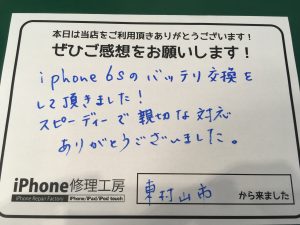 本日は当店をご利用頂きありがとうございます！
ぜひご感想をお願いします！
iphone 6sのバッテリ交換を
して頂きました！
スピーディーで親切な対応
ありがとうございました。
iPhone修理工房
iPhone Repair Factory
iPhone/iPad/iPod touch
東村山市
から来ました